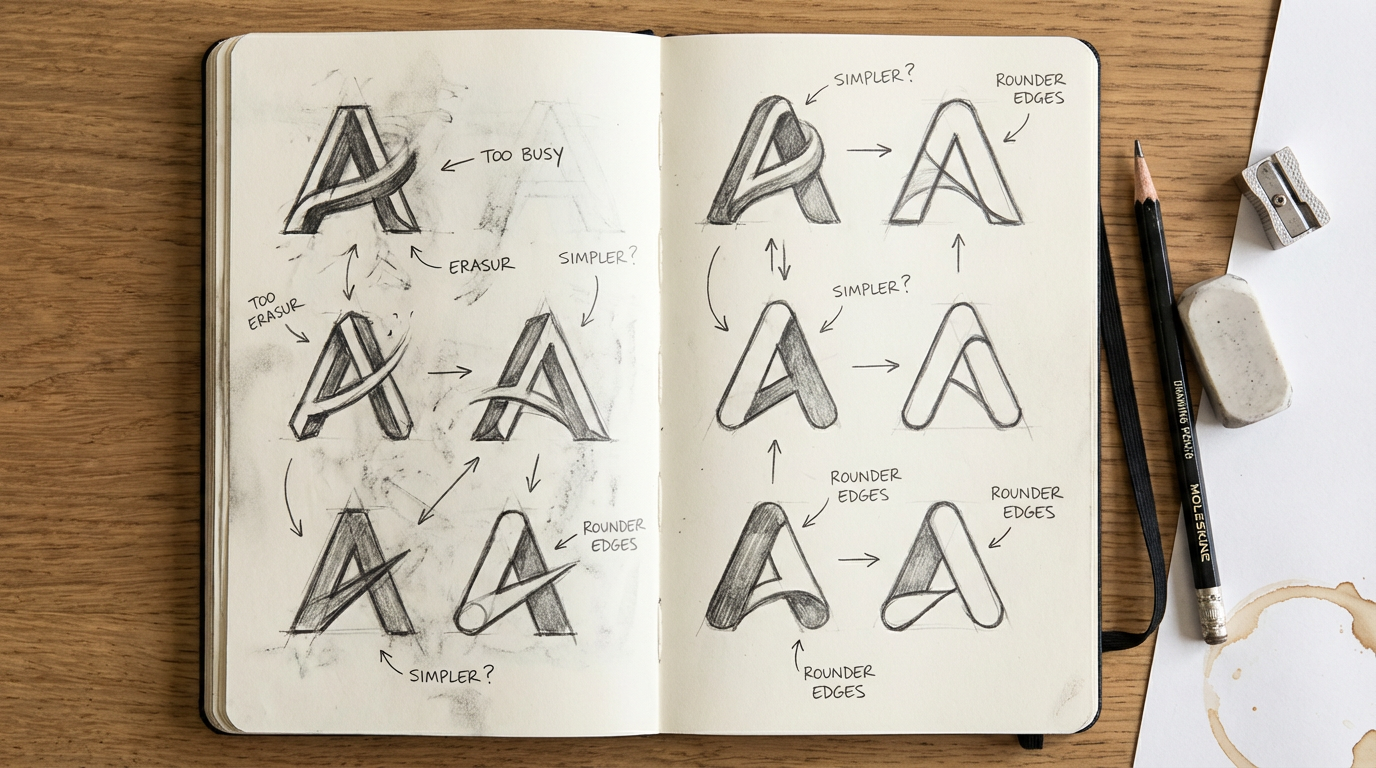 TOO BUSY
ERASUR
SIMPLER?
TOO
ERASUR
ROUNDER
EDGES
SIMPLER?
SIMPLER?
ROUNDER
EDGES
SIMPLER?
ROUNDER
EDGES
ROUNDER
EDGES
ROUNDER
EDGES
MOLESKINE